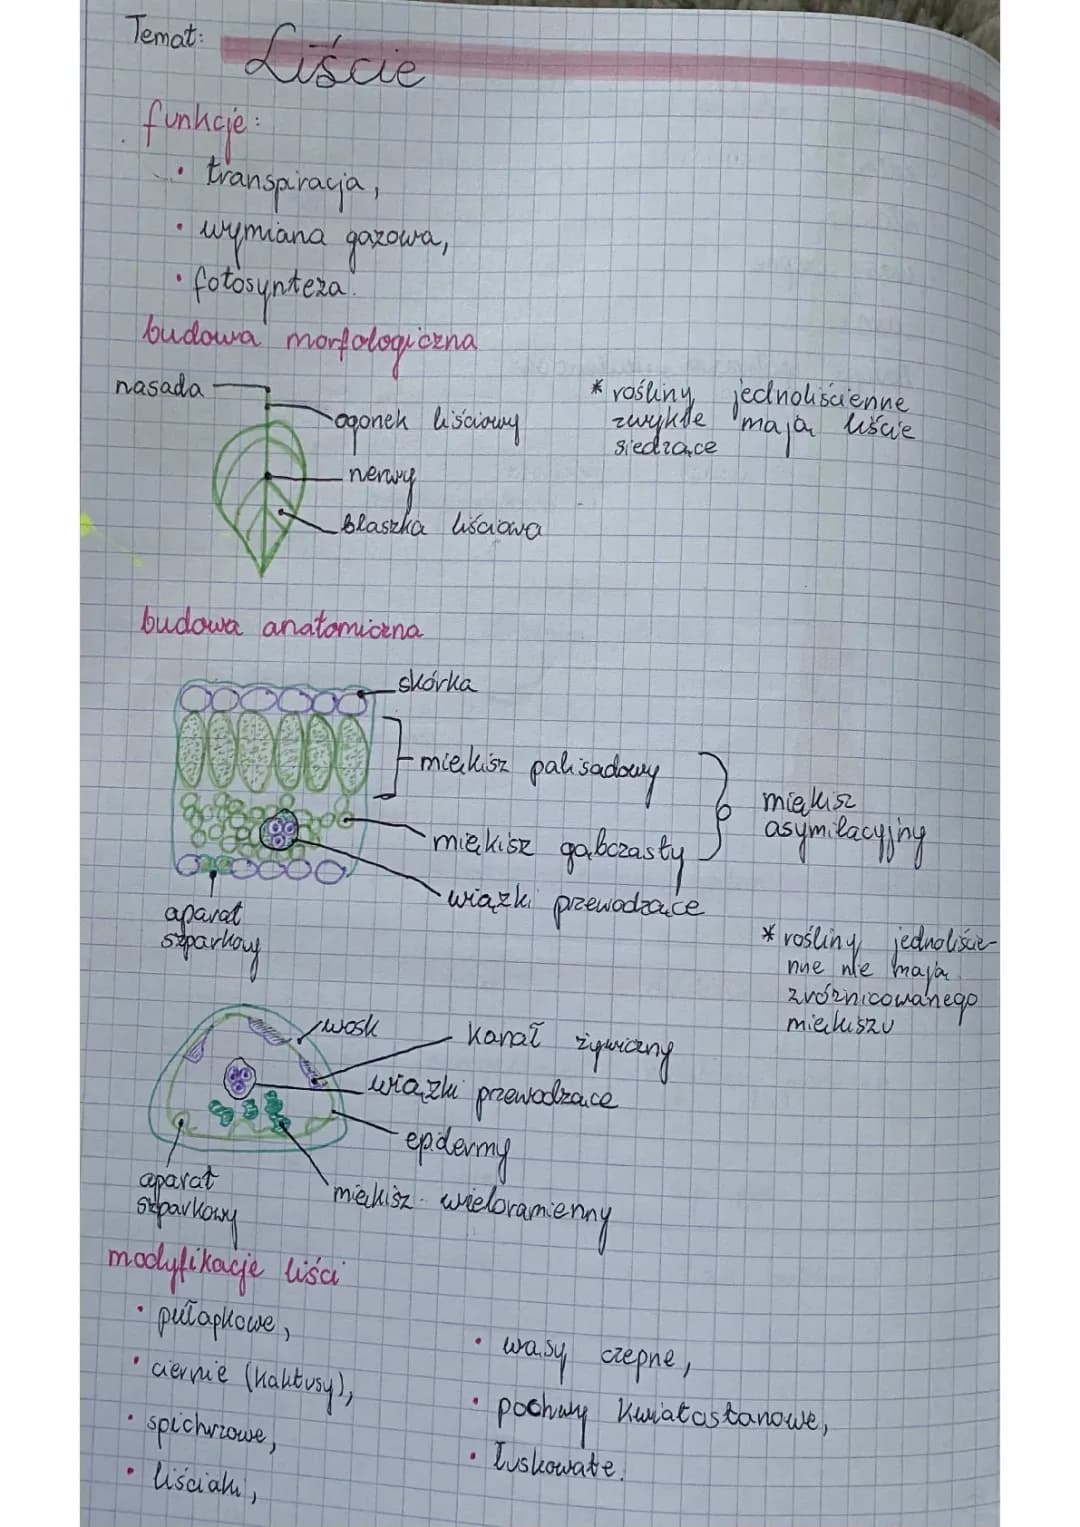 Temat: Liście
funkcje:
• transpiracja,
• wymiana gazowa,
• fotosynteza.
budowa morfologiczna
nasada
ogonek liściowy
nerwy
blaszka liściowa
* rośliny jednoliścienne
zwykle mają liście
siedzące
budowa anatomiczna
skórka
miękisz palisadowy
miękisz gąbczasty
miękisz
asymilacyjny
wiązki przewodzące
aparat
szparkowy
* rośliny jednoliście-
nne nie mają
zróżnicowanego
miękiszu
wosk
kanał żywiczny
wiązki przewodzące
epidermy
miękisz wieloramienny
aparat
szparkowy
modyfikacje liści
• pułapkowe,
• ciernie (kaktusy),
• spichrzowe,
• liściaki,
• wąsy czepne,
• pochwy kwiatostanowe,
• łuskowate.